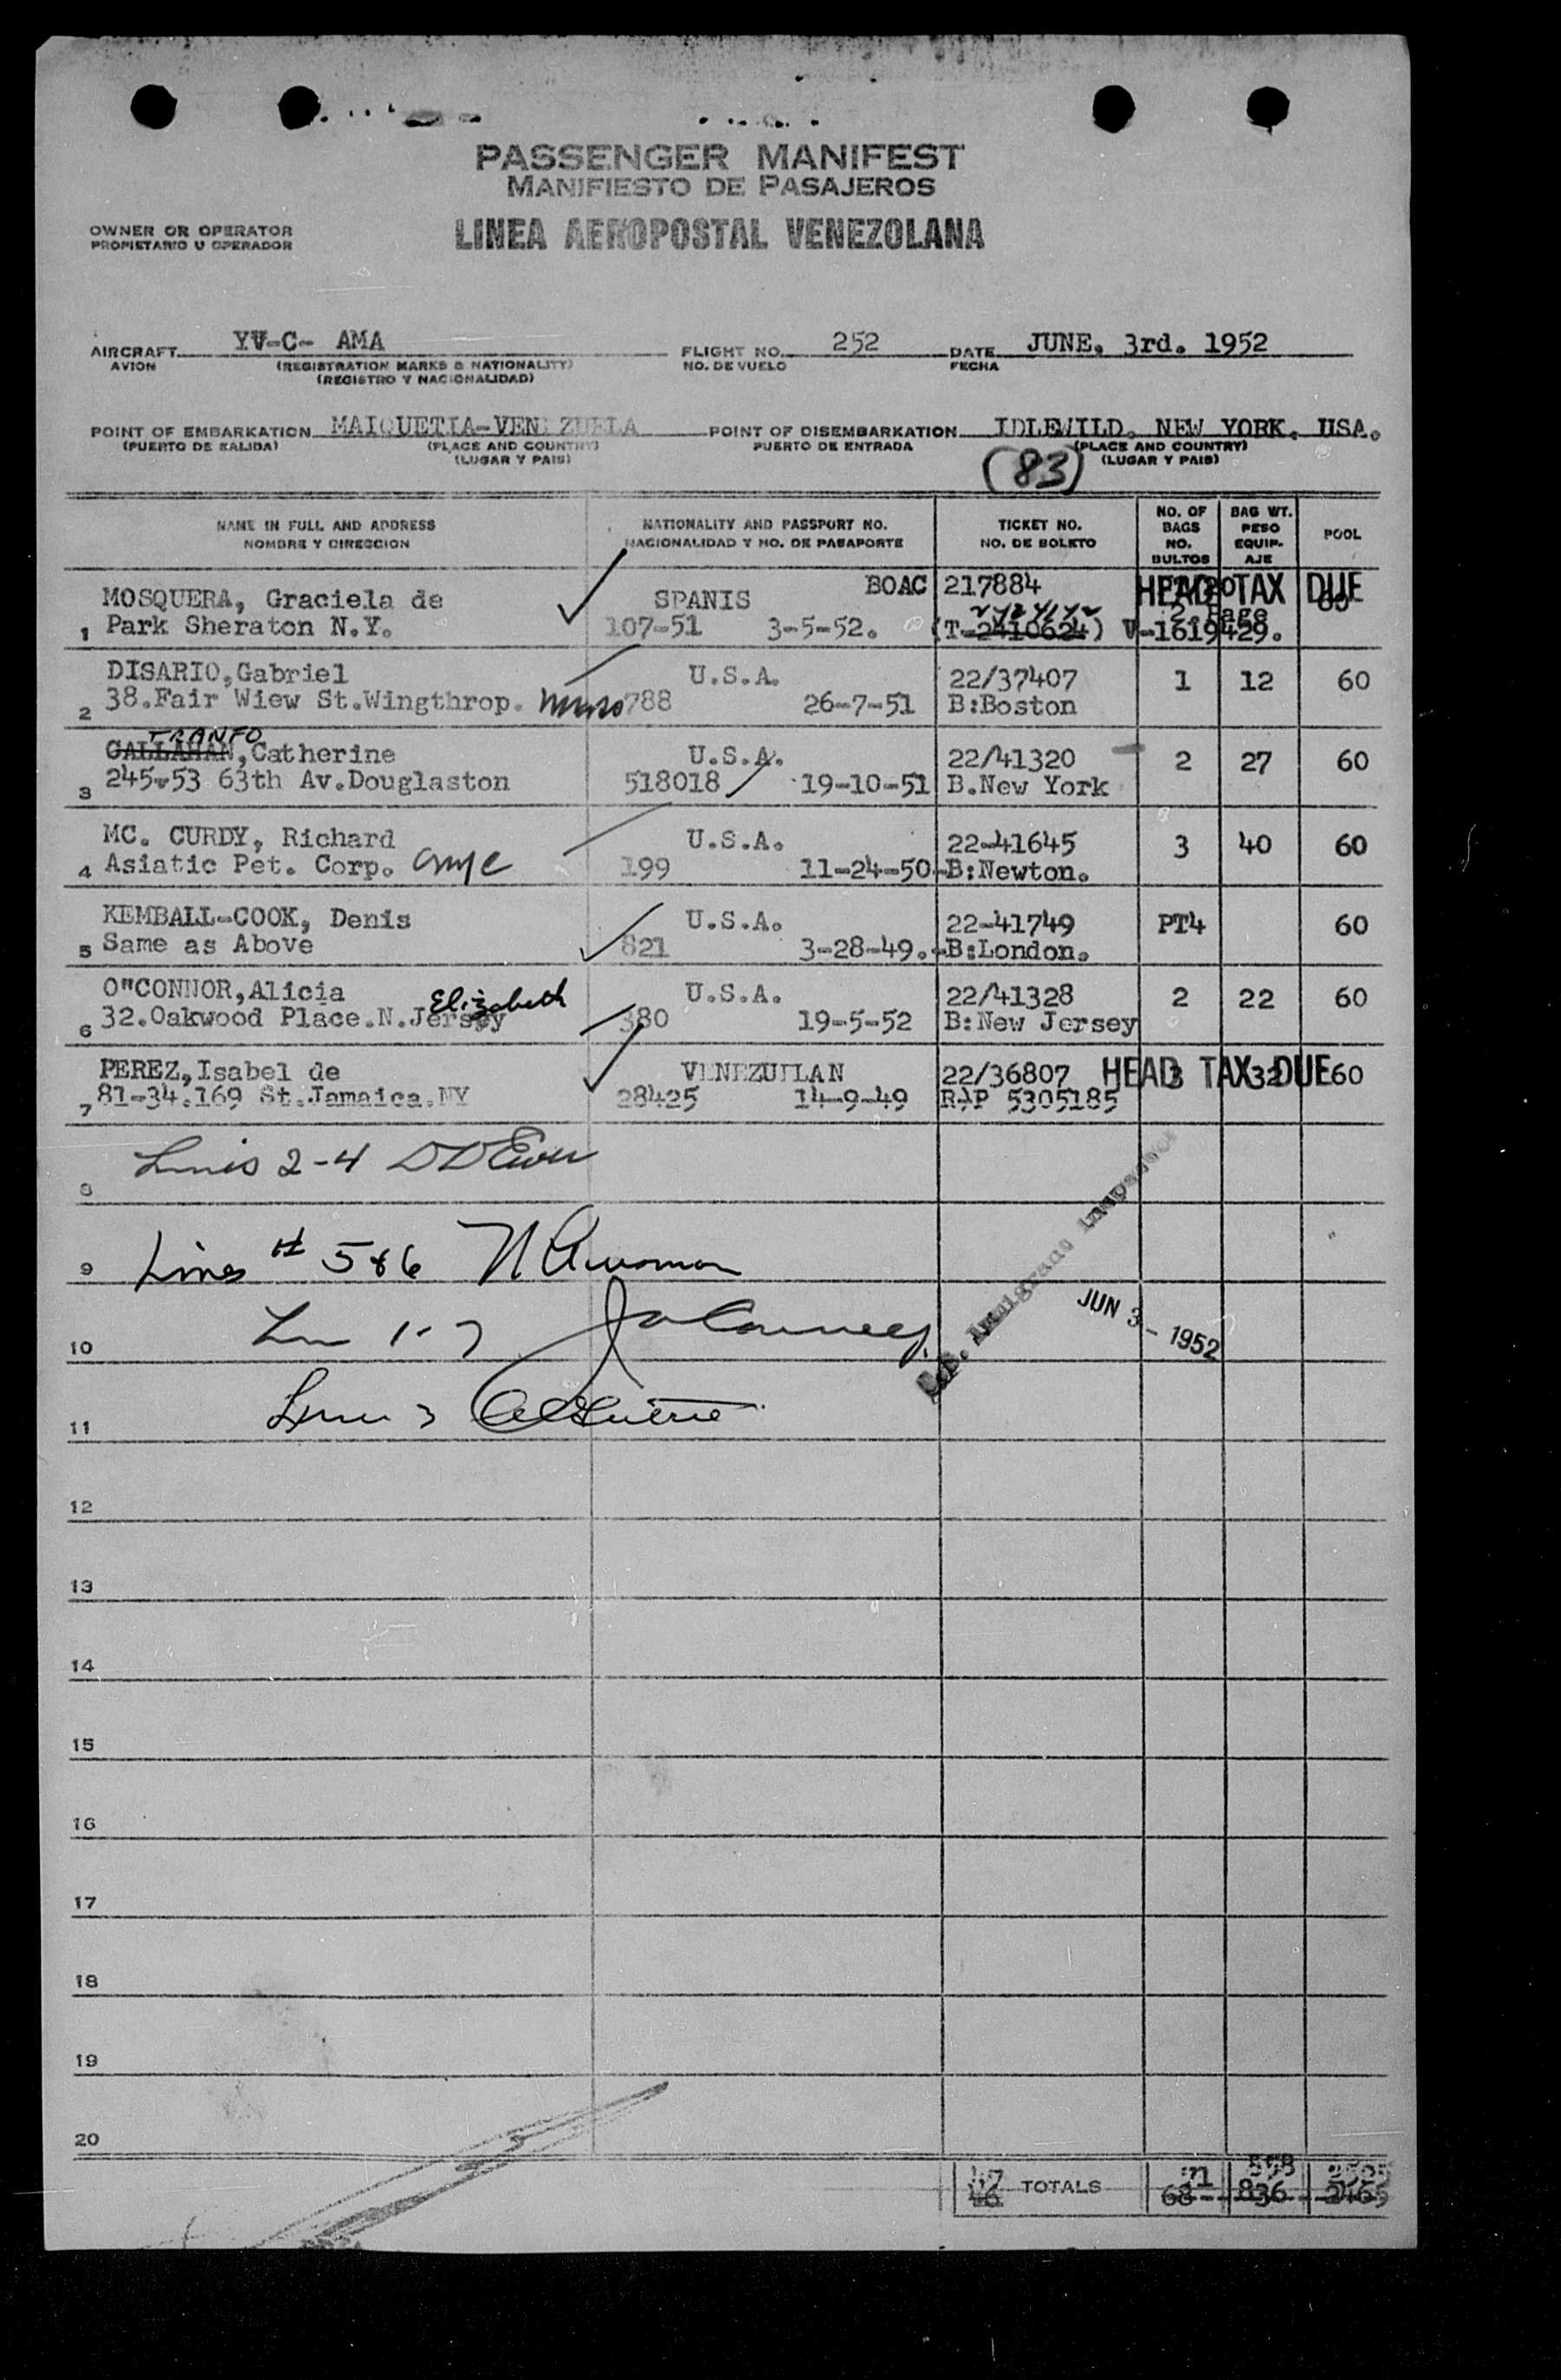 PASSENGER MANIFEST
MANIFIESTO DE PASAJEROS
OWNER OR OPERATOR
PROPIETARIO U OPERADOR
LINEA AEROPOSTAL VENEZOLANA
AIRCRAFT YV-C- AMA FLIGHT NO. 252 DATE JUNE. 3rd. 1952
AVION (REGISTRATION MARKS & NATIONALITY) NO. DE VUELO FECHA
(REGISTRO Y NACIONALIDAD)
POINT OF EMBARKATION MAIQUETIA-VENEZUELA POINT OF DISEMBARKATION IDLEWILD. NEW YORK. USA.
(PUERTO DE SALIDA) (PLACE AND COUNTRY) PUERTO DE ENTRADA (PLACE AND COUNTRY)
(LUGAR Y PAIS) (83) (LUGAR Y PAIS)
NAME IN FULL AND ADDRESS NATIONALITY AND PASSPORT NO. TICKET NO. NO. OF BAGS BAG WT. POOL
NOMBRE Y DIRECCION NACIONALIDAD Y NO. DE PASAPORTE NO. DE BOLETO NO. BULTOS PESO EQUIPAJE
MOSQUERA, Graciela de SPANIS BOAC 217884 HEAD TAX DUE
1 Park Sheraton N.Y. 107-51 3-5-52. (T-2410624) V-1619429.
DISARIO,Gabriel U.S.A. 22/37407 1 12 60
2 38.Fair Wiew St.Wingthrop. 788 26-7-51 B:Boston
TRANFO
CALLAHAN,Catherine U.S.A. 22/41320 2 27 60
3 245-53 63th Av.Douglaston 518018 19-10-51 B.New York
MC. CURDY, Richard U.S.A. 22-41645 3 40 60
4 Asiatic Pet. Corp. 199 11-24-50-B:Newton.
KEMBALL-COOK, Denis U.S.A. 22-41749 PT4 60
5 Same as Above 821 3-28-49.-B:London.
O"CONNOR,Alicia Elizabeth U.S.A. 22/41328 2 22 60
6 32.Oakwood Place.N.Jersey 380 19-5-52 B:New Jersey
PEREZ,Isabel de VENEZUELAN 22/36807 HEAD TAX DUE 3 32 60
7 81-34.169 St.Jamaica.NY 28425 14-9-49 RAP 5305185
8 Lines 2-4
9 Lines # 5&6
10 1-7
JUN 3 - 1952
Immigrant Inspector
11
12
13
14
15
16
17
18
19
20
47 71
46 TOTALS 68 836 2465